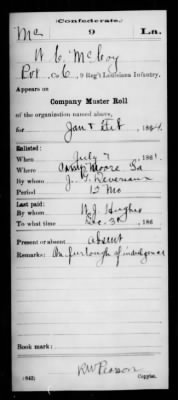 (Confederate.)
Mc 9 La.
W. C. McCoy
Pvt, Co. C, 9 Reg't Louisiana Infantry.
Appears on
Company Muster Roll
of the organization named above,
for Jan & Feb, 1864.
Enlisted:
When July 7, 1861.
Where Camp Moore La
By whom J. G. Devereaux
Period 12 Mo
Last paid:
By whom W. J. Hughes
To what time Dec. 31, 186
Present or absent Absent
Remarks: On furlough of indulgence
Book mark:
(642) R W Pearson
Copyist.